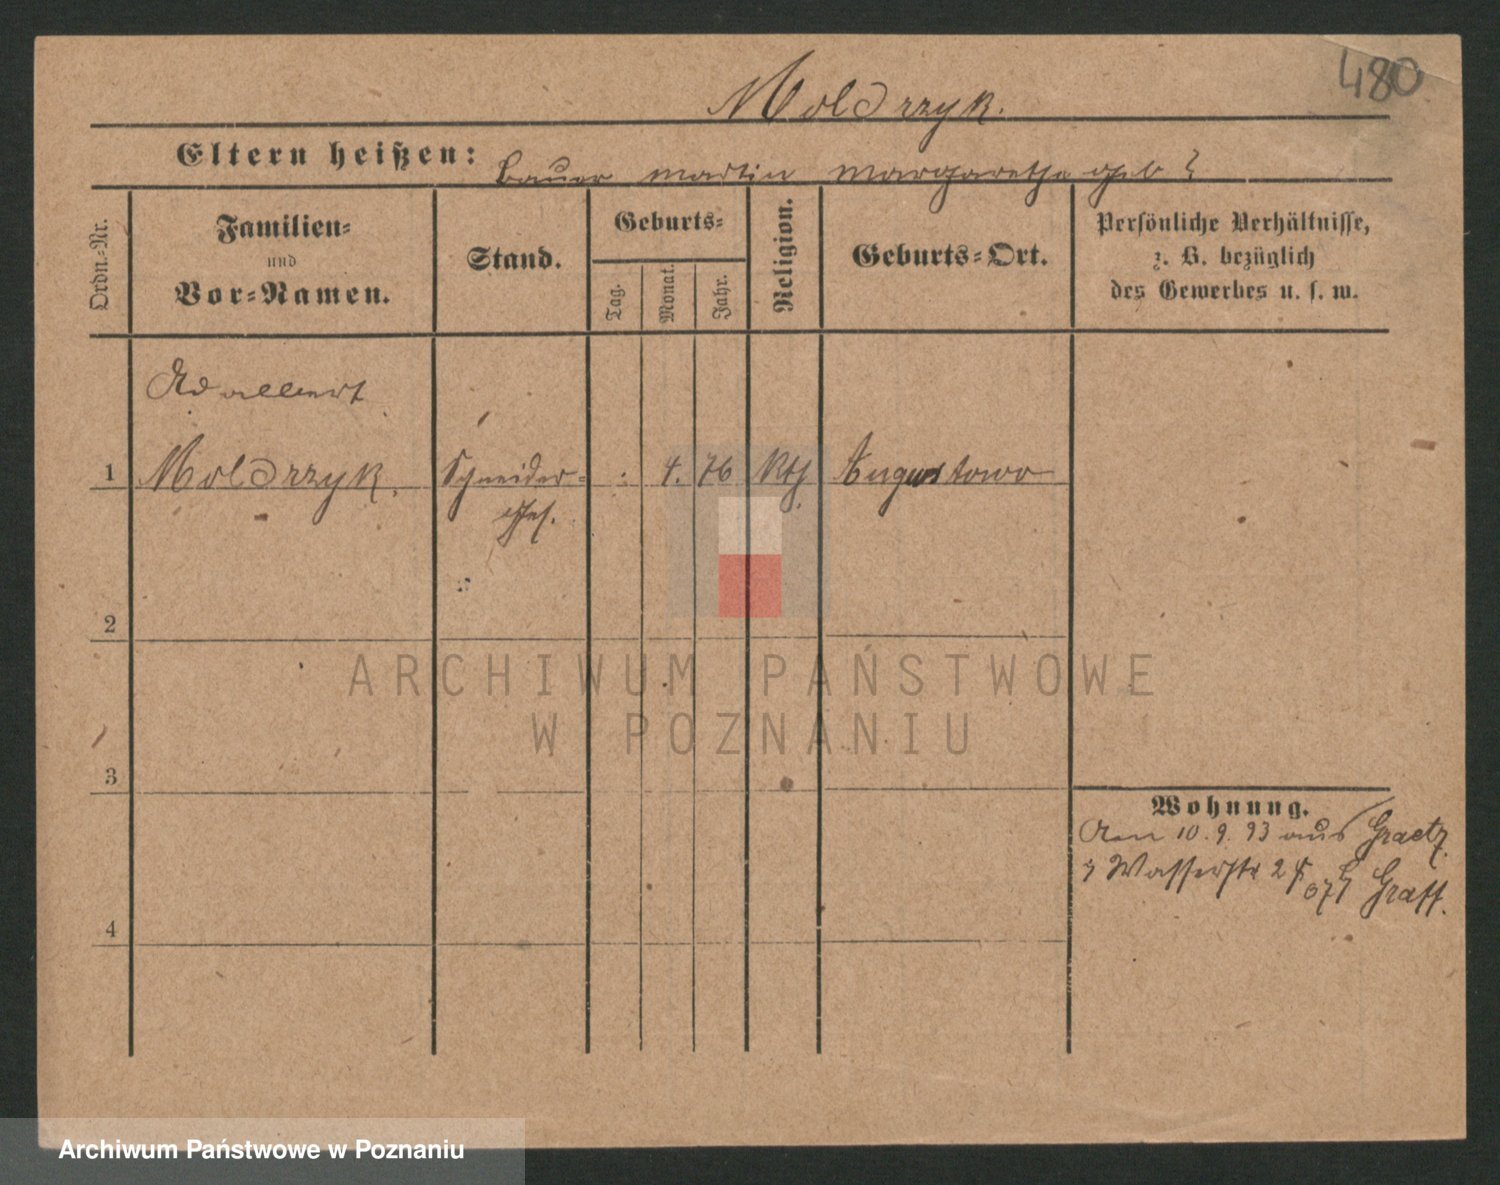 480
Moldrzyk.
Eltern heißen: Bauer Martin Margarethe geb ?
Ordn.-Nr.
Familien- und Vor-Namen.
Stand.
Geburts-
Tag. Monat. Jahr.
Religion.
Geburts-Ort.
Persönliche Verhältnisse,
z. B. bezüglich
des Gewerbes u. s. w.
Adalbert
1 Moldrzyk. Schneider- 4. 76 Kth. Augustowo
Ges.
2
3
4
Wohnung.
Am 10.9.93 aus Graetz
Wasserstr 2
Graff.
ARCHIWUM PAŃSTWOWE
W POZNANIU
Archiwum Państwowe w Poznaniu